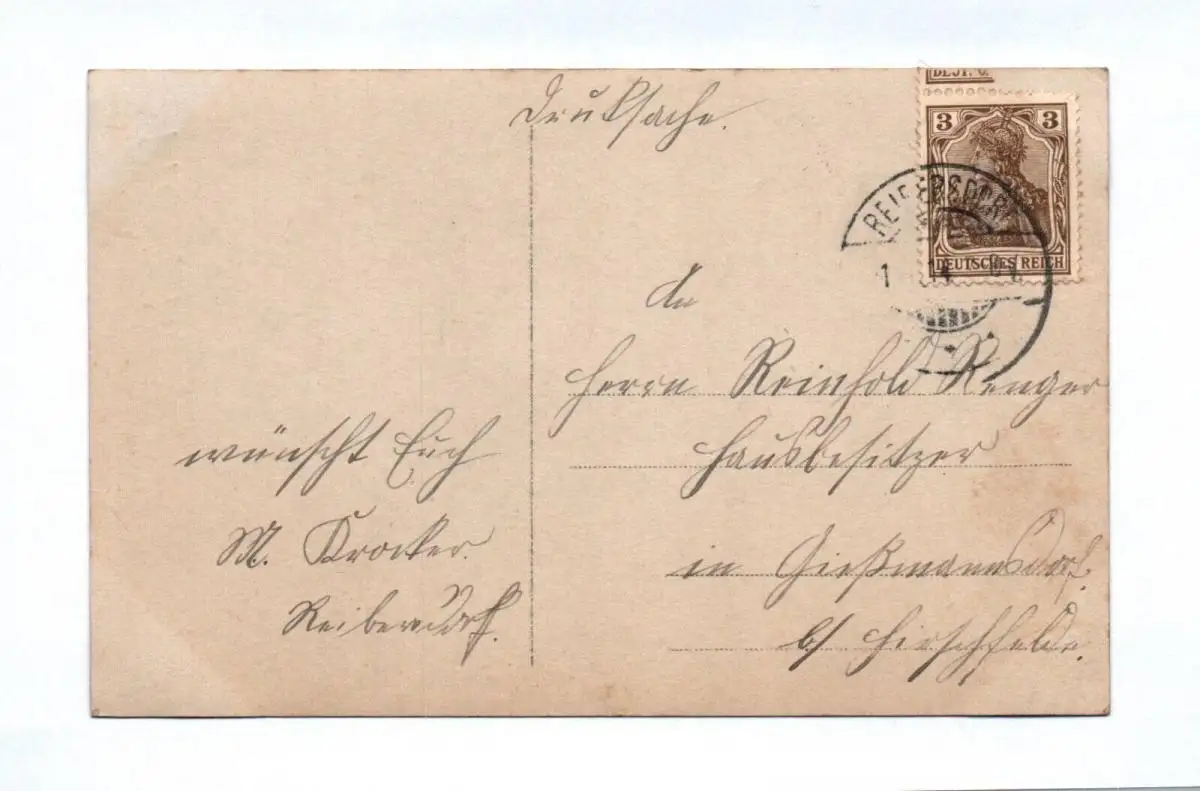 Drucksache.
3 3
DEUTSCHES REICH
REIBERSDORF
1 14
An
Herrn Reinhold Renger
Hausbesitzer
in Gießmannsdorf.
b/ Hirschfelde.
wünscht Euch
M. Krocker.
Reibersdorf.